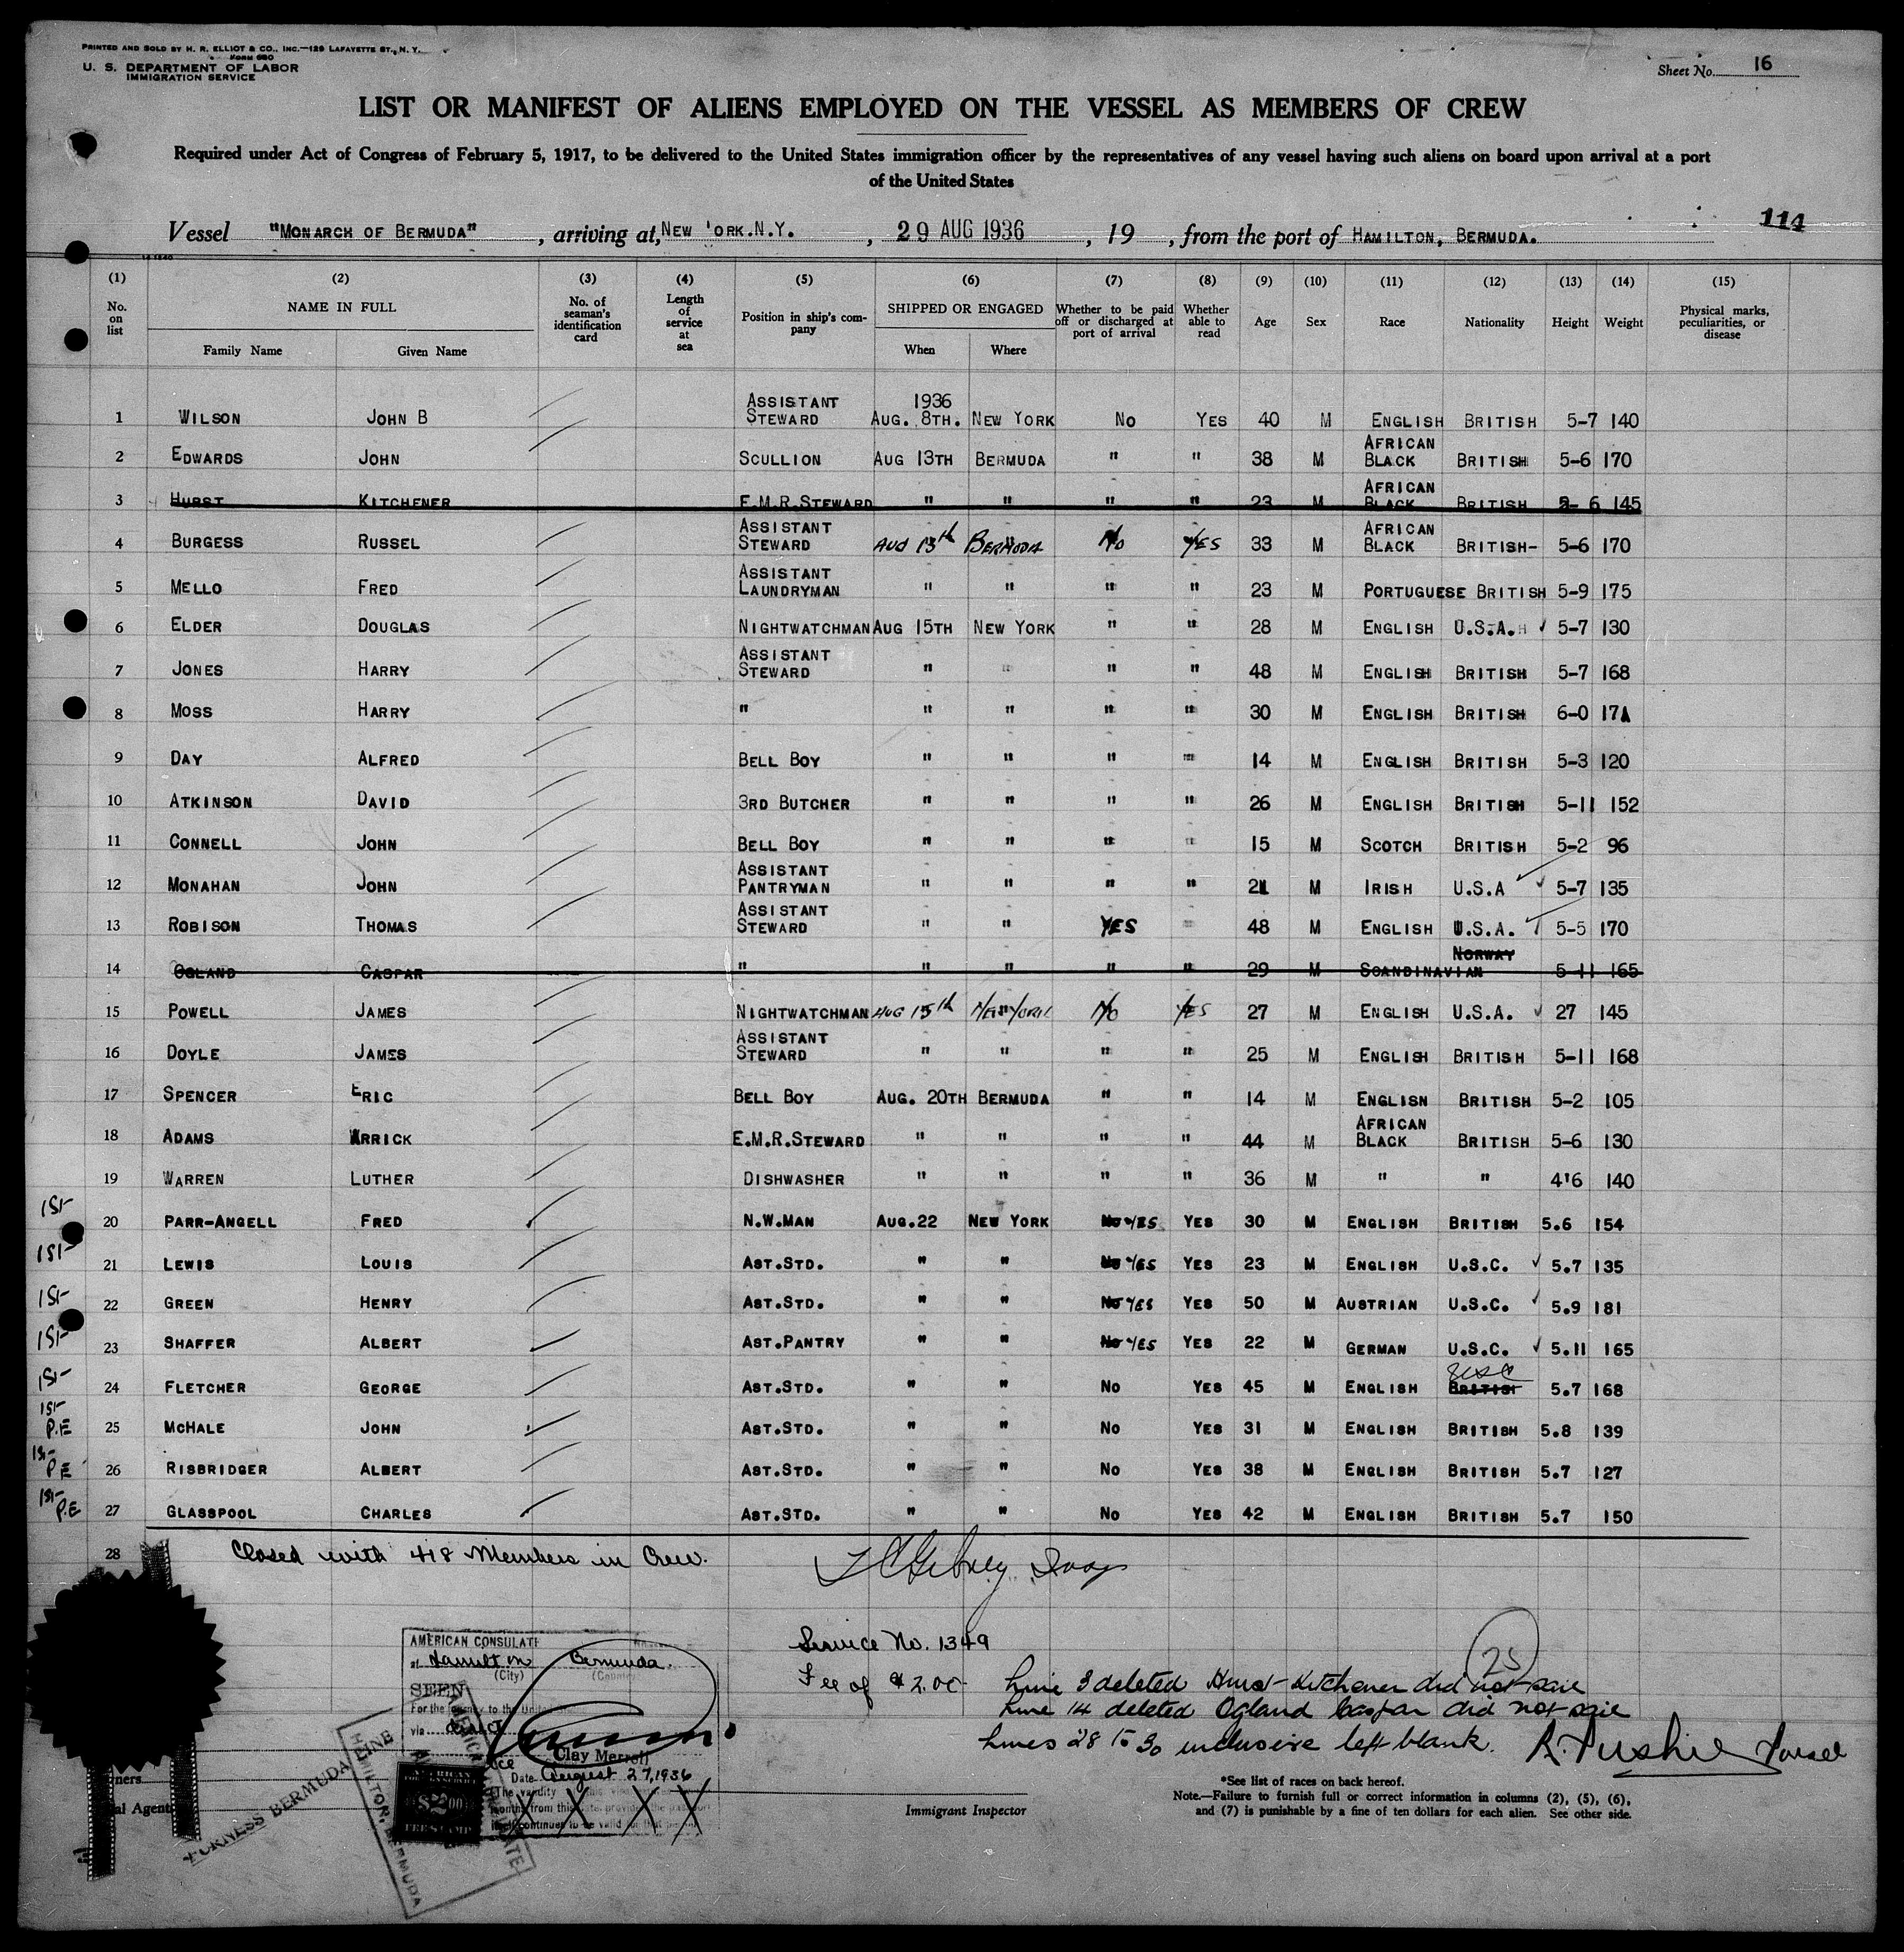 PRINTED AND SOLD BY H. R. ELLIOT & CO., INC.—129 LAFAYETTE ST., N. Y.
FORM 680
U. S. DEPARTMENT OF LABOR
IMMIGRATION SERVICE
Sheet No. 16
LIST OR MANIFEST OF ALIENS EMPLOYED ON THE VESSEL AS MEMBERS OF CREW
Required under Act of Congress of February 5, 1917, to be delivered to the United States immigration officer by the representatives of any vessel having such aliens on board upon arrival at a port
of the United States
114
Vessel "MONARCH OF BERMUDA", arriving at, NEW 'ORK.N.Y., 29 AUG 1936, 19, from the port of HAMILTON, BERMUDA.
(1) (2) (3) (4) (5) (6) (7) (8) (9) (10) (11) (12) (13) (14) (15)
No. on list NAME IN FULL Family Name Given Name No. of seaman's identification card Length of service at sea Position in ship's company SHIPPED OR ENGAGED When Where Whether to be paid off or discharged at port of arrival Whether able to read Age Sex Race Nationality Height Weight Physical marks, peculiarities, or disease
1 WILSON JOHN B ASSISTANT STEWARD 1936 AUG. 8TH. NEW YORK NO YES 40 M ENGLISH BRITISH 5-7 140
2 EDWARDS JOHN SCULLION AUG 13TH BERMUDA " " 38 M AFRICAN BLACK BRITISH 5-6 170
3 HURST KITCHENER E.M.R.STEWARD " " " " 23 M AFRICAN BLACK BRITISH 5-6 145
4 BURGESS RUSSEL ASSISTANT STEWARD AUG 13th BERMUDA No YES 33 M AFRICAN BLACK BRITISH- 5-6 170
5 MELLO FRED ASSISTANT LAUNDRYMAN " " " " 23 M PORTUGUESE BRITISH 5-9 175
6 ELDER DOUGLAS NIGHTWATCHMAN AUG 15TH NEW YORK " " 28 M ENGLISH U.S.A. 5-7 130
7 JONES HARRY ASSISTANT STEWARD " " " " 48 M ENGLISH BRITISH 5-7 168
8 MOSS HARRY " " " " " 30 M ENGLISH BRITISH 6-0 171
9 DAY ALFRED BELL BOY " " " " 14 M ENGLISH BRITISH 5-3 120
10 ATKINSON DAVID 3RD BUTCHER " " " " 26 M ENGLISH BRITISH 5-11 152
11 CONNELL JOHN BELL BOY " " " " 15 M SCOTCH BRITISH 5-2 96
12 MONAHAN JOHN ASSISTANT PANTRYMAN " " " " 21 M IRISH U.S.A 5-7 135
13 ROBISON THOMAS ASSISTANT STEWARD " " YES " 48 M ENGLISH U.S.A. 5-5 170
14 OGLAND CASPAR " " " " " 29 M SCANDINAVIAN NORWAY 5-11 165
15 POWELL JAMES NIGHTWATCHMAN AUG 15th NEW YORK No YES 27 M ENGLISH U.S.A. 27 145
16 DOYLE JAMES ASSISTANT STEWARD " " " " 25 M ENGLISH BRITISH 5-11 168
17 SPENCER ERIC BELL BOY AUG. 20TH BERMUDA " " 14 M ENGLISN BRITISH 5-2 105
18 ADAMS ARRICK E.M.R.STEWARD " " " " 44 M AFRICAN BLACK BRITISH 5-6 130
19 WARREN LUTHER DISHWASHER " " " " 36 M " " 4'6 140
1st 20 PARR-ANGELL FRED N.W.MAN AUG.22 NEW YORK NO YES YES 30 M ENGLISH BRITISH 5.6 154
1st 21 LEWIS LOUIS AST.STD. " " NO YES YES 23 M ENGLISH U.S.C. 5.7 135
1st 22 GREEN HENRY AST.STD. " " NO YES YES 50 M AUSTRIAN U.S.C. 5.9 181
1st 23 SHAFFER ALBERT AST.PANTRY " " NO YES YES 22 M GERMAN U.S.C. 5.11 165
1st 24 FLETCHER GEORGE AST.STD. " " NO YES 45 M ENGLISH BRITISH 5.7 168
1st P.E 25 MCHALE JOHN AST.STD. " " NO YES 31 M ENGLISH BRITISH 5.8 139
1st P.E 26 RISBRIDGER ALBERT AST.STD. " " NO YES 38 M ENGLISH BRITISH 5.7 127
1st P.E 27 GLASSPOOL CHARLES AST.STD. " " NO YES 42 M ENGLISH BRITISH 5.7 150
28 Closed with 418 Members in Crew.
Service No. 1349
Fee of $2.00
25
Line 3 deleted Hurst Kitchener did not sail
Line 14 deleted Ogland Caspar did not sail
Lines 28 to 30 inclusive left blank.
AMERICAN CONSULATE
at Hamilton Bermuda.
(City) (Country)
SEEN
For the journey to the United
via direct
Clay Merrell
Date August 27, 1936
The validity
months from this date, provided the passport
itself continues to be valid for that period
X X X X
AMERICAN
$2.00
FEE STAMP
FURNESS BERMUDA LINE
HAMILTON, BERMUDA
Immigrant Inspector
*See list of races on back hereof.
Note.—Failure to furnish full or correct information in columns (2), (5), (6),
and (7) is punishable by a fine of ten dollars for each alien. See other side.